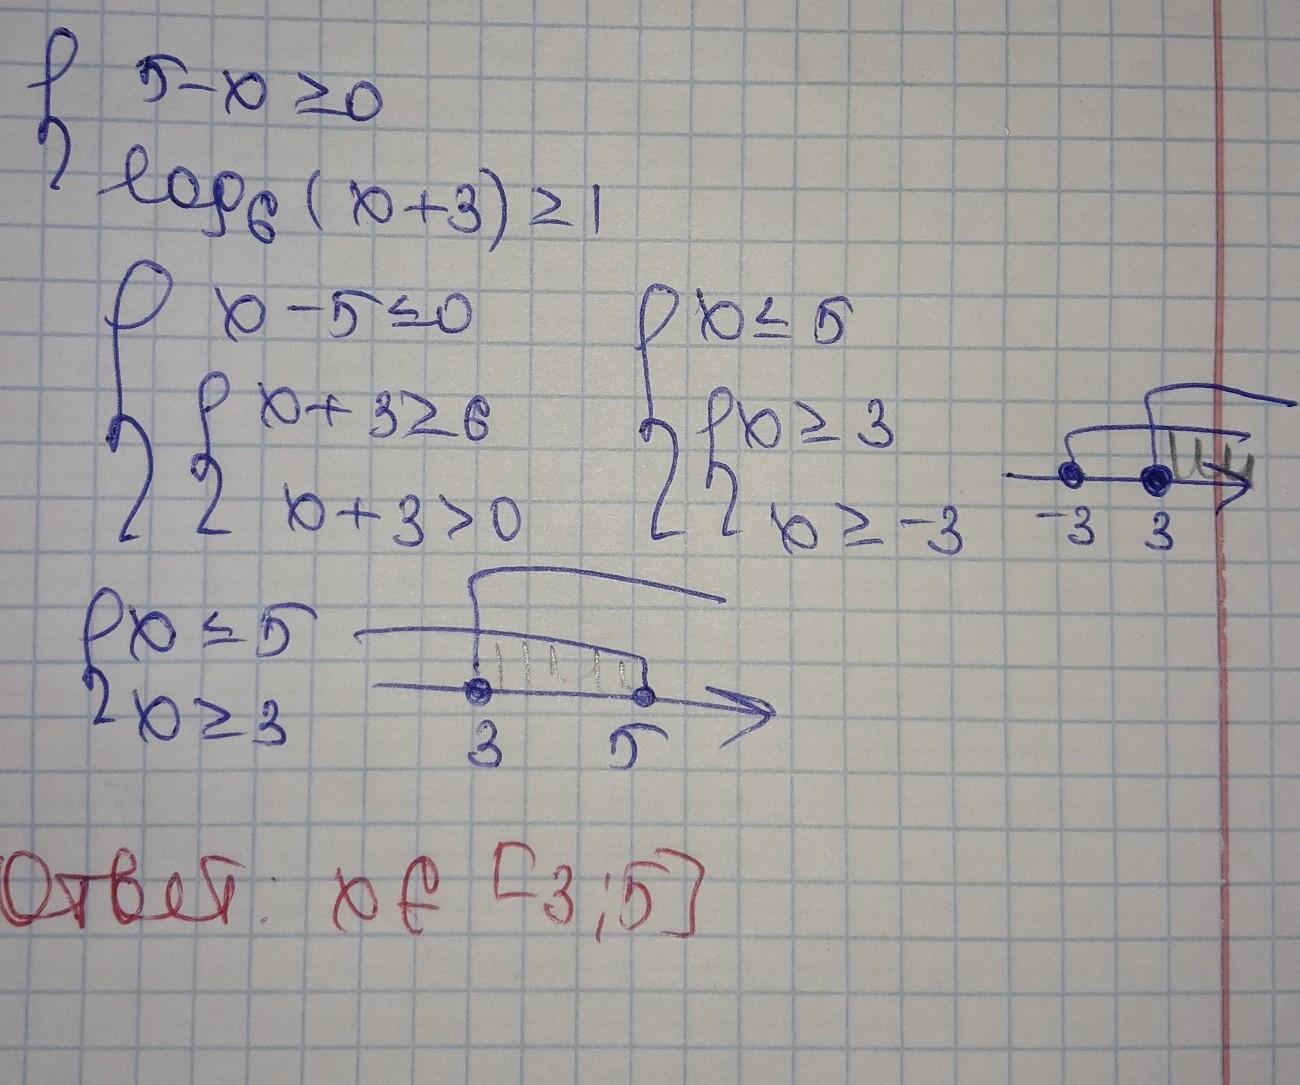 5-x ≥ 0
log₆(x+3) ≥ 1
x-5 ≤ 0 x ≤ 5
x+3 ≥ 6 x ≥ 3
x+3 > 0 x ≥ -3 -3 3
x ≤ 5
x ≥ 3 3 5
Ответ: x ∈ [3;5]